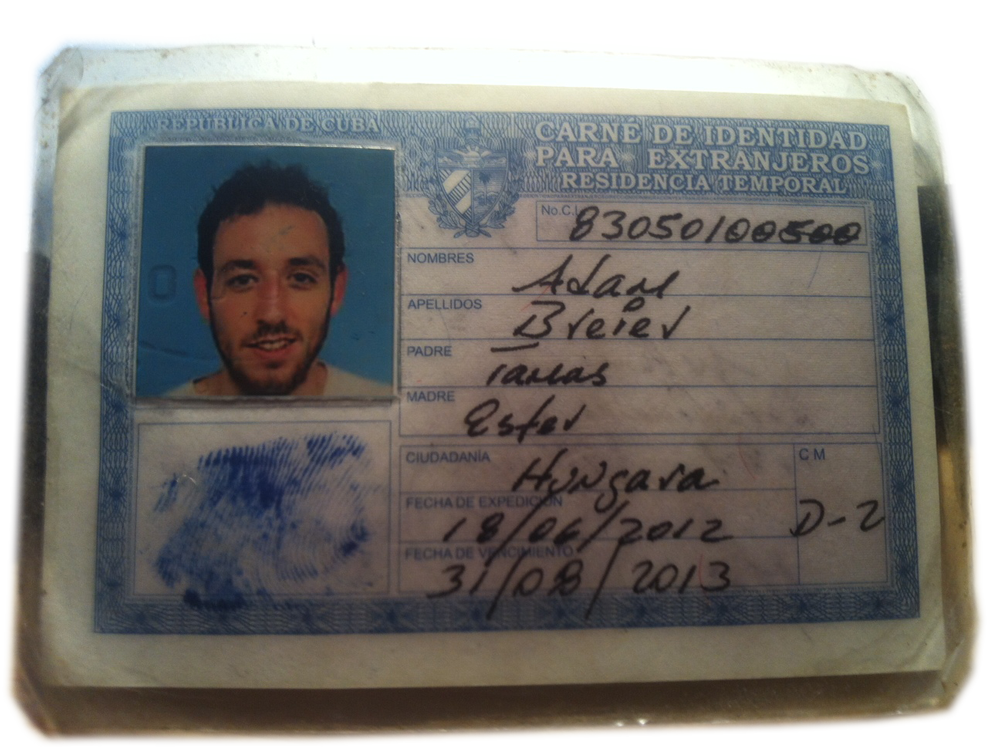 REPÚBLICA DE CUBA
CARNÉ DE IDENTIDAD
PARA EXTRANJEROS
RESIDENCIA TEMPORAL
No.C.I. 83050100500
NOMBRES Adam
APELLIDOS Breier
PADRE Tamas
MADRE Ester
CIUDADANÍA Húngara
C M D-2
FECHA DE EXPEDICIÓN 18/06/2012
FECHA DE VENCIMIENTO 31/08/2013